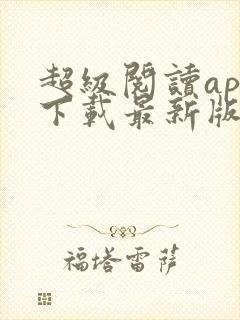 超級閱讀ap
下載最新版
福塔雷萨